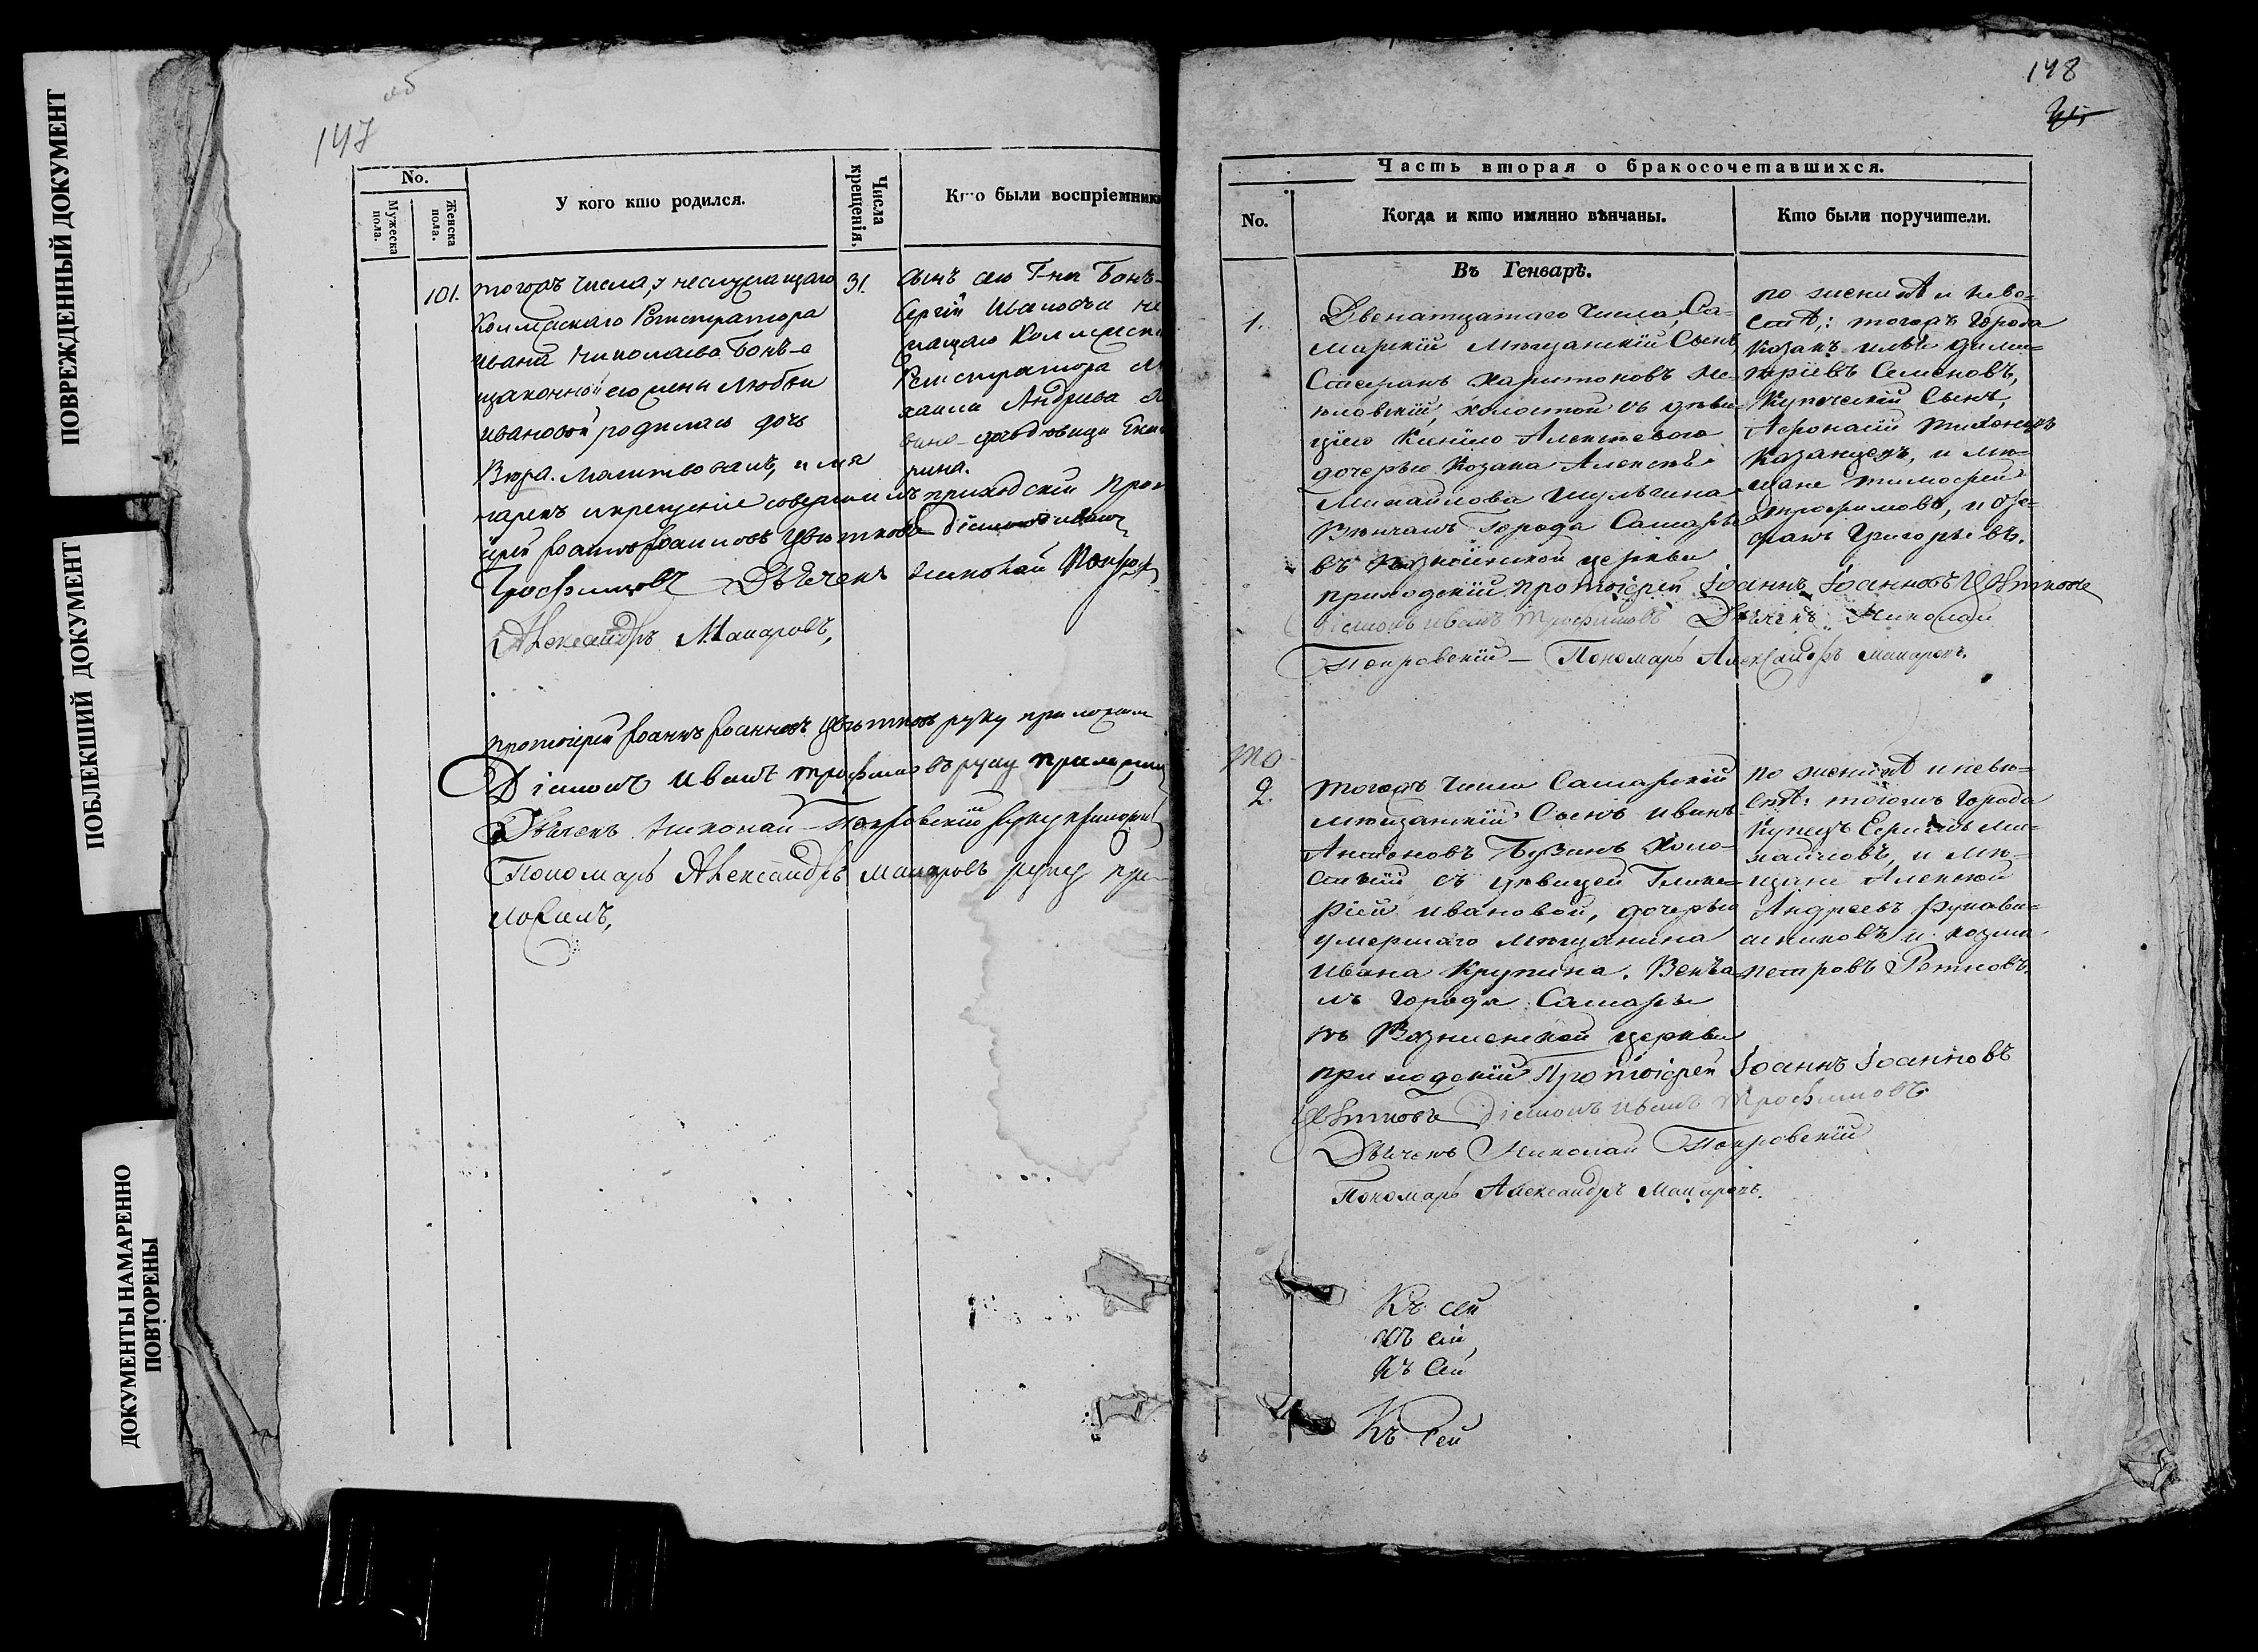 ПОВРЕЖДЕННЫЙ ДОКУМЕНТ
ПОБЛЕКШИЙ ДОКУМЕНТ
ДОКУМЕНТЫ НАМАРЕННО
ПОВТОРЕНЫ
об
147
No.
Мужеска
пола.
Женска
пола.
У кого кто родился.
Числа
крещенія.
Кто были воспріемники
101.
тогожъ числа, у неслужащаго
Коллежскаго Регистратора
Ивана Николаева Бонъ-е
законной его жены Любви
Ивановой родилась дочь
Вера. Молитвовалъ, имя
нарекъ и крещеніе совершилъ приходскій Прото
іерей Іоаннъ Іоанновъ Цвѣтковъ Діаконъ Иванъ
Трофимовъ Дьячекъ Николай Покров
Александръ Макаровъ,
31.
сынъ его Г-на Бонъ-
Сергій Ивановъ и не
лащаго Коллежск
Регистратора М
хаила Андреева
вдовица Екате
рина.
Протоіерей Іоаннъ Іоанновъ Цвѣтковъ руку приложилъ
Діаконъ Иванъ Трофимовъ руку приложилъ
Дьячекъ Николай Покровскій руку приложилъ
Пономарь Александръ Макаровъ руку при-
ложилъ,
148
Часть вторая о бракосочетавшихся.
No.
Когда и кто имянно вѣнчаны.
Кто были поручители.
Въ Генварѣ.
1.
Двенатцатаго числа, Са-
марскій мѣщанскій Сынъ
Стефанъ Харитоновъ
холостой съ дѣви-
цею Алексѣевою
дочерью Козака Алексѣя
Михайлова Шульгина
Вѣнчалъ Города Самары
въ церкви
приходскій протоіерей Іоаннъ Іоанновъ Цвѣтковъ
Діаконъ Иванъ Трофимовъ Дьячекъ Николай
Покровскій — Пономарь Александръ Макаровъ.
по женихѣ и неве-
стѣ: тогожъ Города
Козакъ Дими-
тріевъ Семеновъ,
Купеческій Сынъ,
Афонасій Тихоновъ
Казанцевъ, и мѣ-
щане Тимофей
Трофимовъ, и Сте-
фанъ Григорьевъ.
то
2.
тогожъ числа Самарскій
мѣщанскій Сынъ Иванъ
Антоновъ Пузинъ Холо-
стый съ дѣвицей Глике-
рией Ивановой, дочерью
умершаго мѣщанина
Ивана Крупина. Венча-
лъ Города Самары
въ Вознесенской церкви
приходскій Протоіерей Іоаннъ Іоанновъ
Цвѣтковъ Діаконъ Иванъ Трофимовъ
Дьячекъ Николай Покровскій
Пономарь Александръ Макаровъ.
по женихѣ и неве-
стѣ: тогожъ Города
Купецъ Ефимъ Ми-
хайловъ, и мѣ-
щане Алексей
Андреевъ Рукави-
шниковъ и Козма
Петровъ
Къ сей
Къ сей,
Къ Сей
Къ Сей